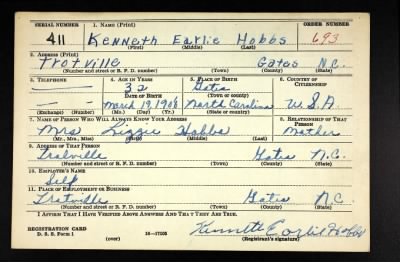 SERIAL NUMBER 1. NAME (Print) ORDER NUMBER
411 Kenneth Earlie Hobbs 693
(First) (Middle) (Last)
2. ADDRESS (Print)
Trotville Gates N.C.
(Number and street or R. F. D. number) (Town) (County) (State)
3. TELEPHONE 4. AGE IN YEARS 5. PLACE OF BIRTH 6. COUNTRY OF CITIZENSHIP
32 Gates
DATE OF BIRTH (Town or county)
— — March 19, 1908 North Carolina U.S.A.
(Exchange) (Number) (Mo.) (Day) (Yr.) (State or country)
7. NAME OF PERSON WHO WILL ALWAYS KNOW YOUR ADDRESS 8. RELATIONSHIP OF THAT PERSON
Mrs Lizzie Hobbs Mother
(Mr., Mrs., Miss) (First) (Middle) (Last)
9. ADDRESS OF THAT PERSON
Trotville Gates N.C.
(Number and street or R. F. D. number) (Town) (County) (State)
10. EMPLOYER'S NAME
Self
11. PLACE OF EMPLOYMENT OR BUSINESS
Trotville Gates N.C.
(Number and street or R. F. D. number) (Town) (County) (State)
I AFFIRM THAT I HAVE VERIFIED ABOVE ANSWERS AND THAT THEY ARE TRUE.
REGISTRATION CARD
D. S. S. Form 1 (over) 16—17105 Kenneth Earlie Hobbs
(Registrant's signature)